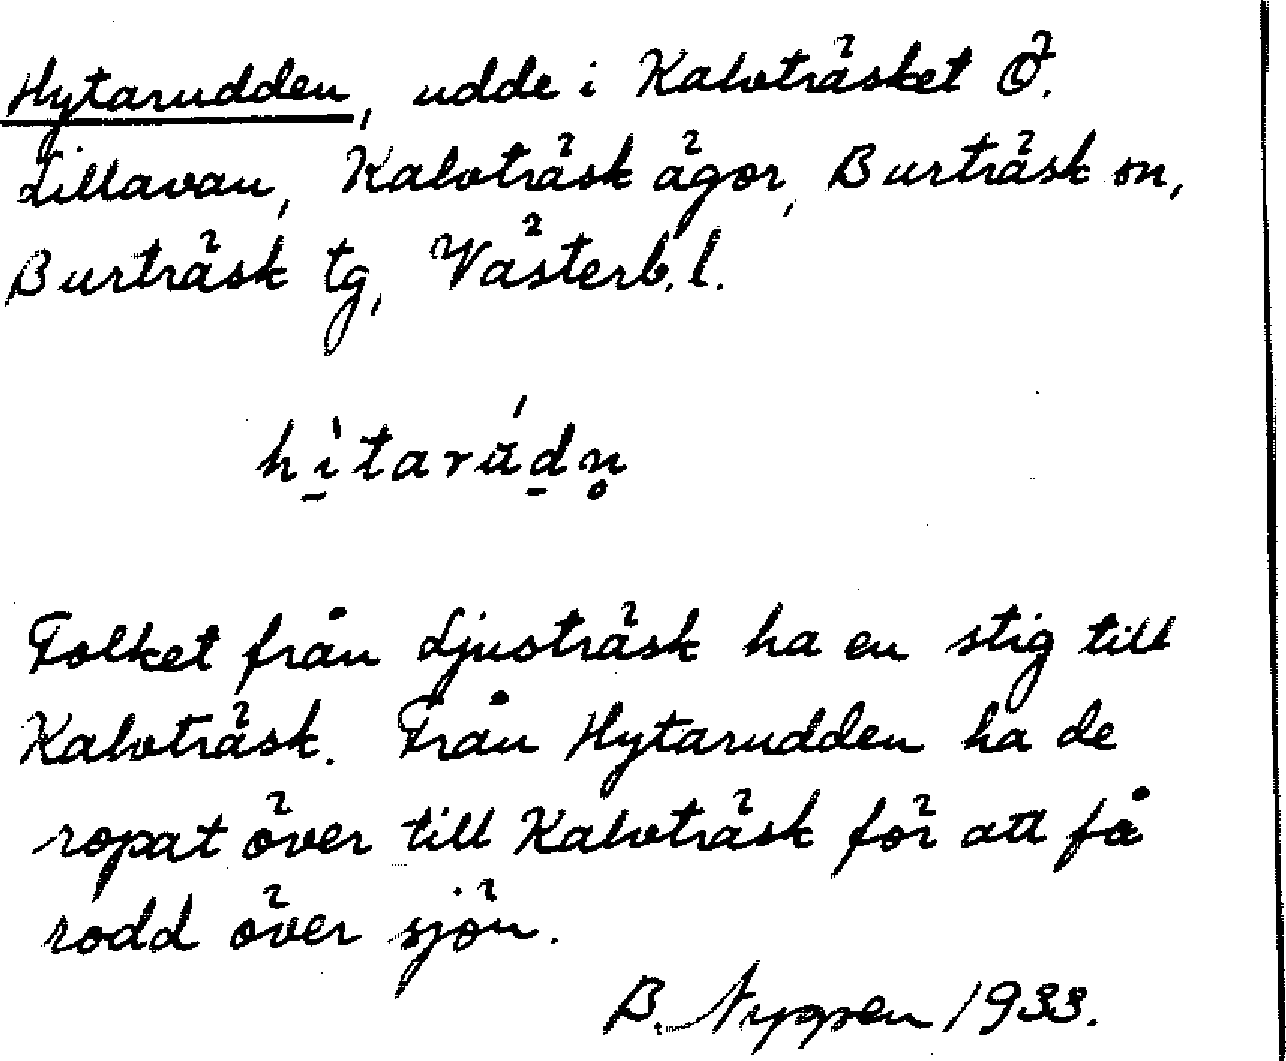 Hytarudden, udde i Kalvträsket Ö.
Lillavan, Kalvträsk ägor, Burträsk sn,
Burträsk tg, Västerb. l.
hìtarúdn̥
Folket från Ljusträsk ha en stig till
Kalvträsk. Från Hytarudden ha de
ropat över till Kalvträsk för att få
rodd över sjön.
B. 1933.